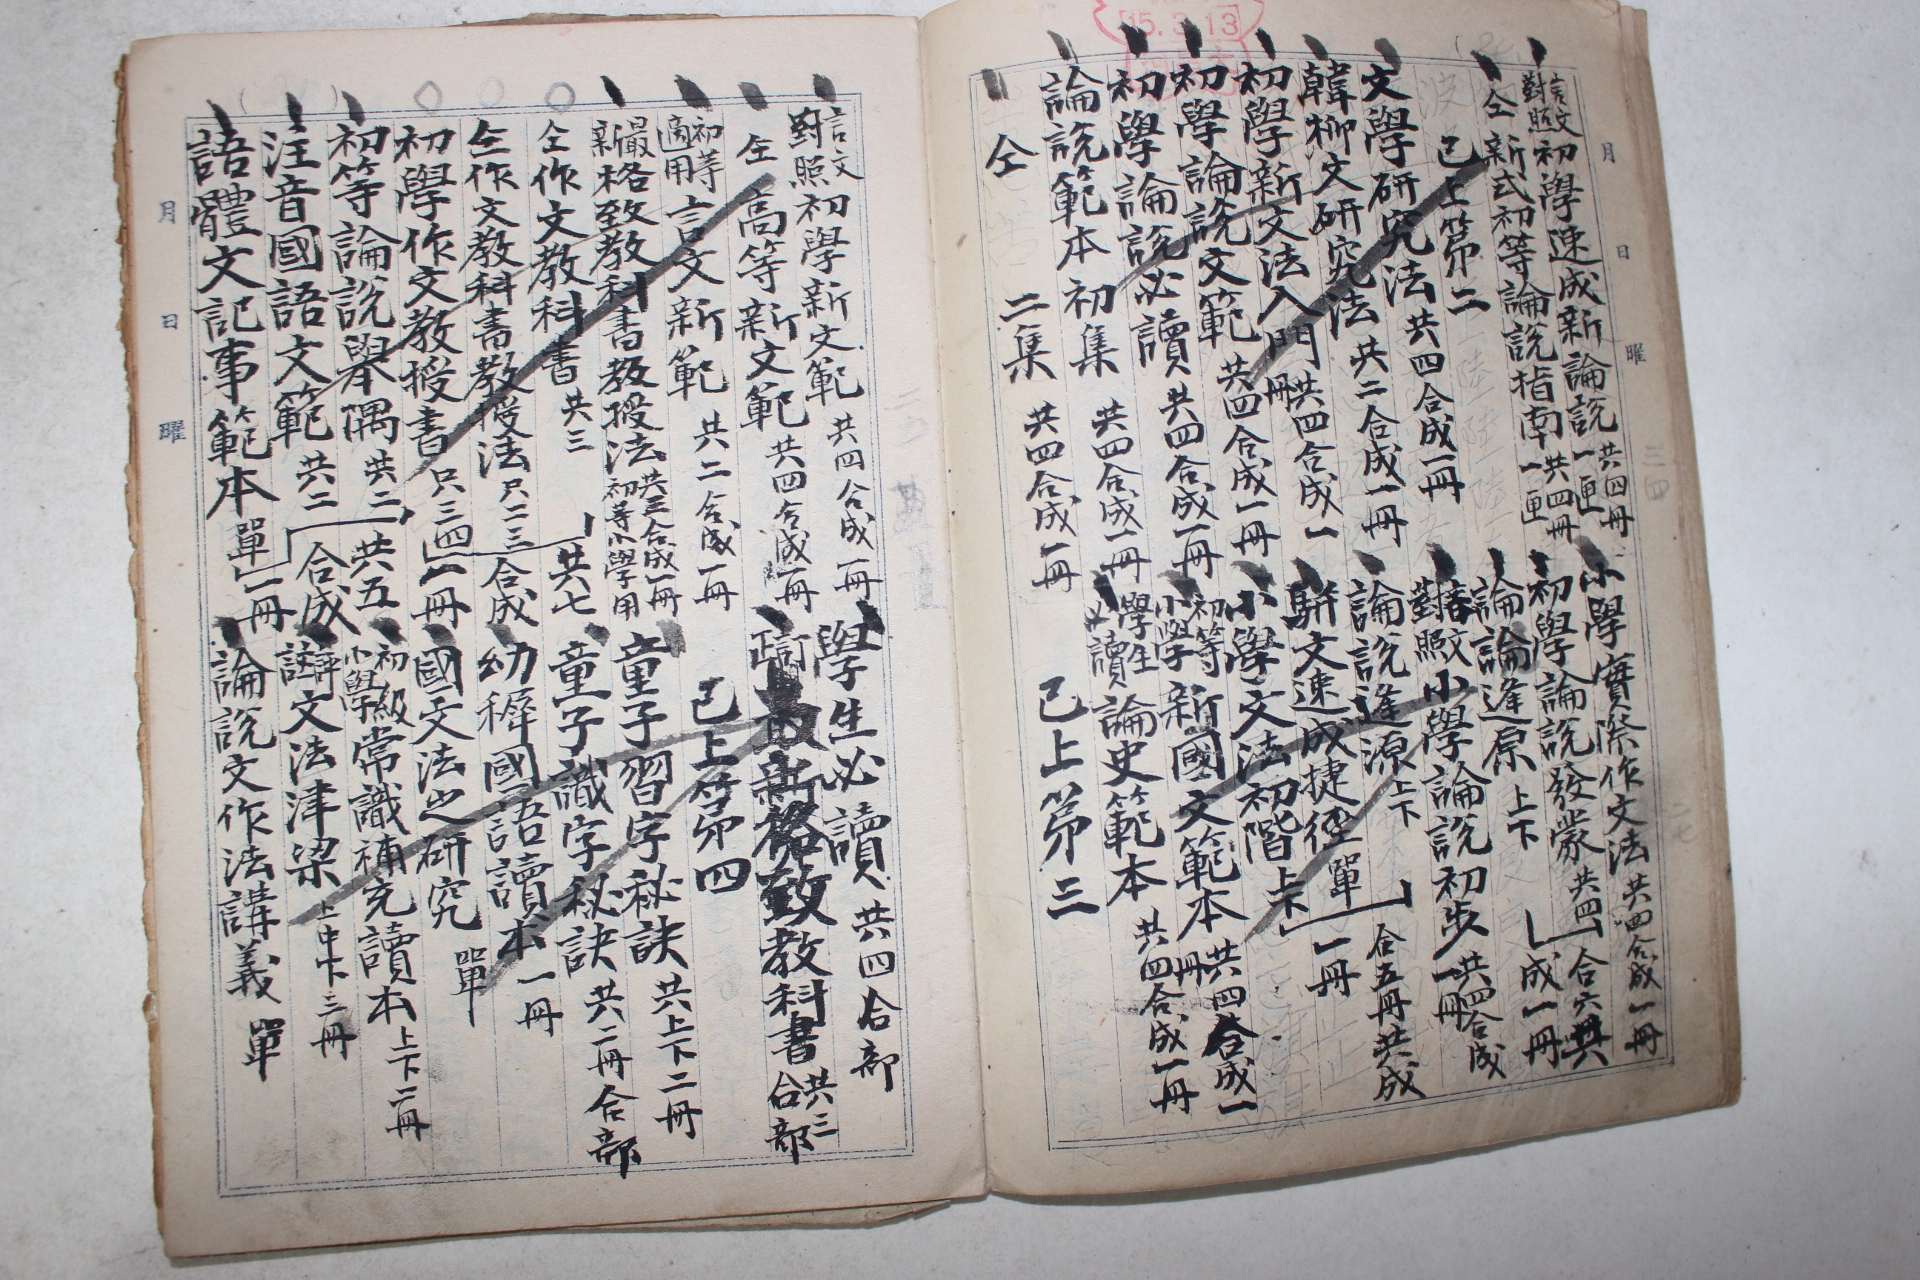 15.3.13
月 日 曜
言文對照 初學速成新論說 共四冊一匣
仝 新式初等論說指南 共四冊一匣
已上第二
文學研究法 共四合成一冊
韓柳文研究法 共二合成一冊
初學新文法入門 共四合成一冊
初學論說文範 共四合成一冊
初學論說必讀 共四合成一冊
論說範本 初集 共四合成一冊
仝 二集 共四合成一冊
小學實際作文法 共四合成一冊
初學論說發蒙 共四 合六共
論論逢原 上下 成一冊
對照 小學論說初步 共四合成一冊
論說逢源 上下 合五冊共成
駢文速成捷徑 單 一冊
小學文法初階 上下
初等小學 新國文範本 共四合成一冊
學生必讀 論史範本 共四合成一冊
已上第三
言文對照 初學新文範 共四合成一冊
仝 高等新文範 共四合成一冊
初等適用 言文新範 共二合成一冊
最新格致教科書教授法 共三合成一冊 初等小學用
仝作文教科書 共三 共七
仝作文教科書教授法 只二三 合成
初學作文教授書 只三四 一冊
初等論說舉隅 共二 共五
注音國語文範 共二 合成
語體文記事範本 單 一冊
學生必讀 共四合部
新格致教科書 共三合部
已上第四
童子習字秘訣 共上下二冊
童子識字秘訣 共二冊合部
幼稺國語讀本 一冊
國文法之研究 單
初級小學 常識補充讀本 上下二冊
文法津梁 上中下三冊
論說文作法講義 單
月 日 曜